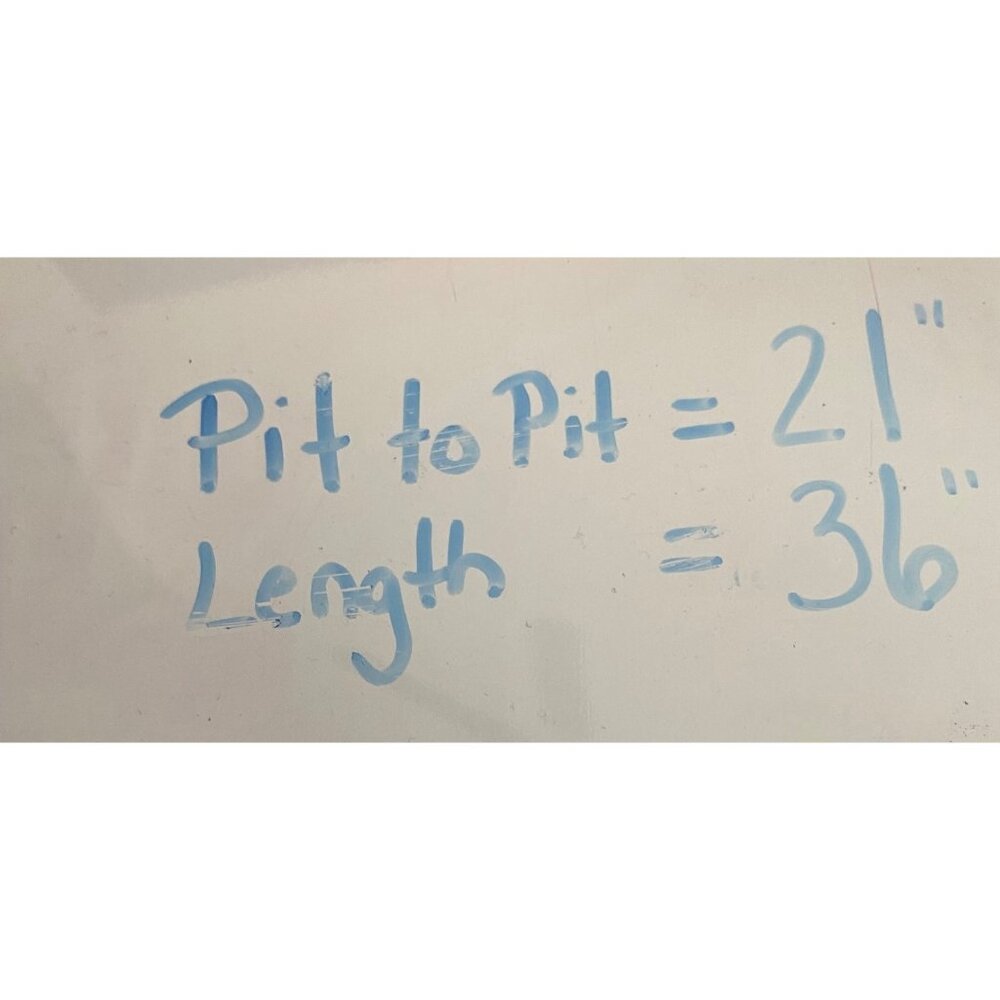 Pit to Pit = 21"
Length = 36"